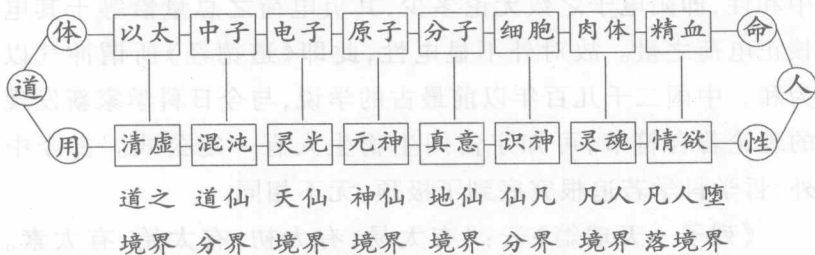 体 以太 中子 电子 原子 分子 细胞 肉体 精血 命
道 人
用 清虚 混沌 灵光 元神 真意 识神 灵魂 情欲 性
道之 道仙 天仙 神仙 地仙 仙凡 凡人 凡人堕
境界 分界 境界 境界 境界 分界 境界 落境界